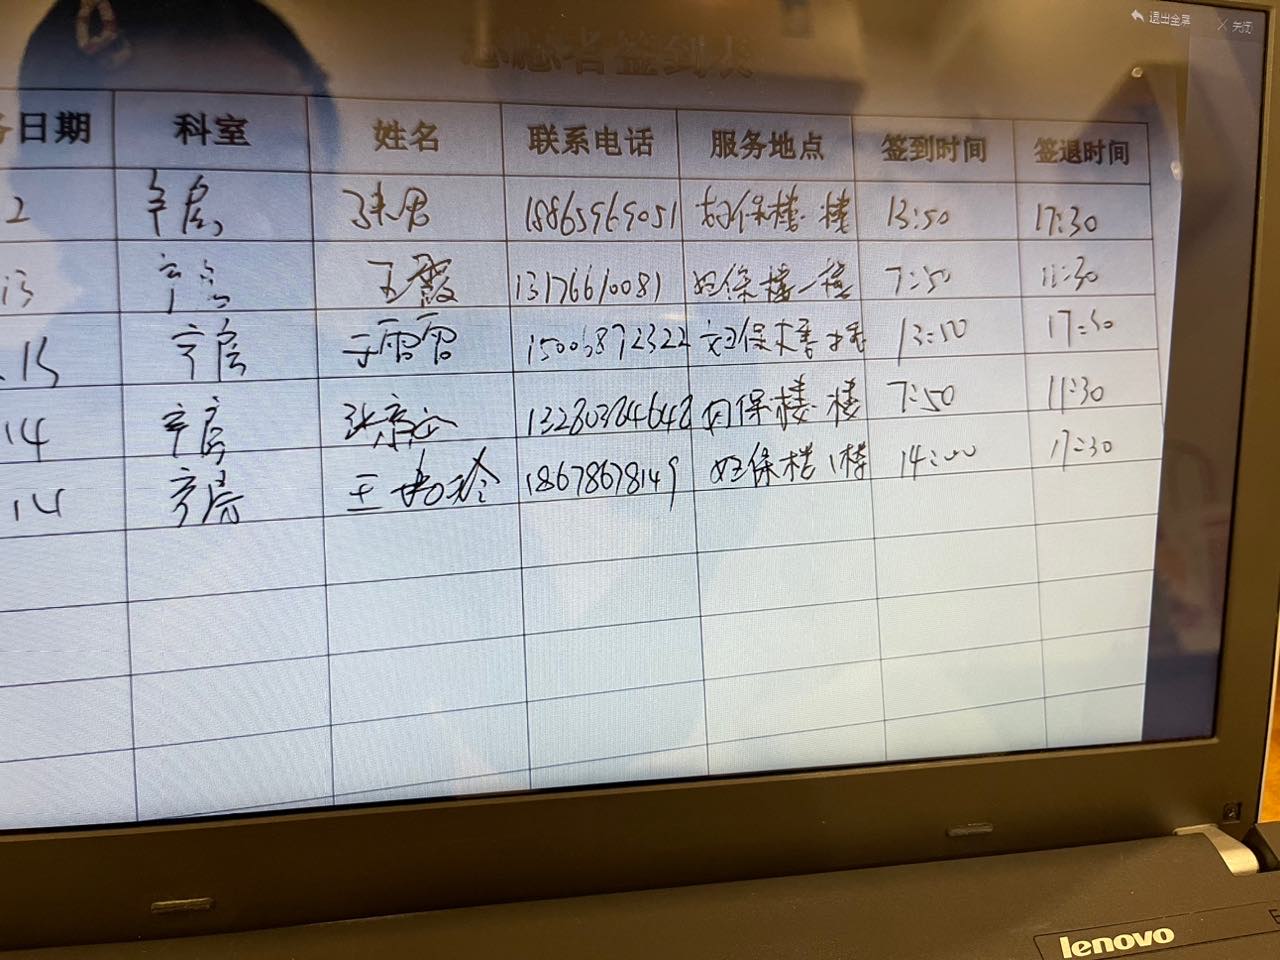 退出全屏 关闭
志愿者签到表
务日期 科室 姓名 联系电话 服务地点 签到时间 签退时间
2 产房 18865969051 妇保楼一楼 13:50 17:30
13 产房 王霞 13176610081 妇保楼一楼 7:50 11:30
.13 产房 于雷雷 15003872322 妇保楼一楼 13:50 17:30
14 产房 13280384648 妇保楼一楼 7:50 11:30
14 产房 王 玲 18678678149 妇保楼1楼 14:00 17:30
lenovo